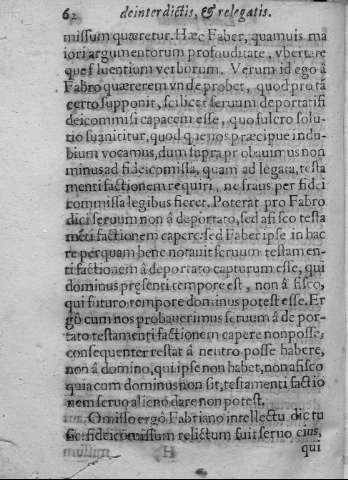 62 deinterdictis, & relegatis.
missum quæretur. Hæc Faber, quamuis ma
iori argumentorum profunditate, vbertate
que fluentium verborum. Verum id ego â
Fabro quærerem vnde probet, quod pro tã
certo supponit, scilicet seruum deportati fi
deicommisi capacem esse, quo fulcro solu
tio sua nititur, quod quenos præcipue indu
bium vocamus, dum supra probauimus non
minus ad fideicomissa, quam ad legata, testa
menti factionem requiri, ne fraus per fidei
commissa legibus fieret. Poterat pro Fabro
dici seruum non â deportato, sed a fisco testa
mẽti factionem capere: sed Faber ipse in hac
re perquam bene notauit seruum testamen-
ti factionem â deportato capturum esse, qui
dominus presenti tempore est, non â fisco,
qui futuro tempore dominus potest esse. Er
gò cum nos probauerimus seruum â depor-
tato testamenti factionem capere non posse,
consequenter restat â neutro posse habere,
non â domino, qui ipse non habet, non a fisco
quia cum dominus non sit, testamenti factio
nem seruo alieno dare non potest.
Omisso ergò Fabriano intellectu dictu
sic: fideicomissum relictum fuit seruo eius,
qui